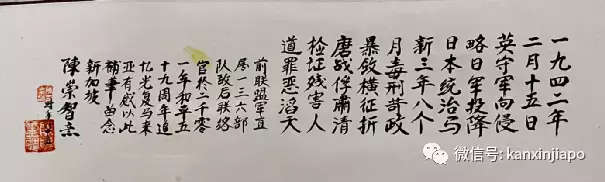 一九四二年
二月十五日
英守军向侵
略日军投降
日本统治马
新三年八个
月毒刑苛政
暴敛横征折
磨战俘肃清
检证残害人
道罪恶滔天
前联盟军直
属一三六部
队政后联络
官於二千零
一年和平五
十九周年追
忆光复马来
亚有感以此
補笔留念
新加坡
陳崇智
微信号: kanxinjiapo